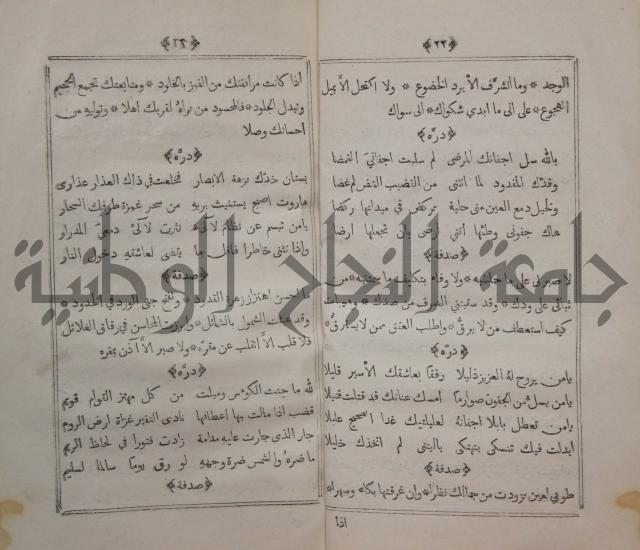 ﴿٢٣﴾
الوجد * وما اتشرف الا برد الخضوع * ولا اكتحل الا بميل
الهجوع * على انى ما ابدي شكواك * الى سواك
﴿درة﴾
بالله سل اجفانك المرضى لم سلبت اجفاني الغمضا
وقدك المقدود لما انثنى من القضيب النضر لم غضا
وخيل دمع العين من حلبة تركض في ميدانها ركضا
هاك جفوني وطئها انني ارضى بان تجعلها ارضا
﴿صدفة﴾
لا صبر لى على ما حملتنيه * ولا وفاء
ثباتى على ودك * وقد سقيتنى من صدك *
كيف استعطف من لا يرق * واطلب العتق ممن لا يسترق
﴿درة﴾
يامن يروح له العزيز ذليلا رفقا بعاشقك الأسير قليلا
يامن يسل من الجفون صوارما امسك عنانك قد قتلت قتيلا
يامن تعطل بابلا اجفانه لعليلتيك غدا الصحيح عليلا
ابدلت فيك تنسكى بتهتكى ياليتنى لم اتخذك خليلا
﴿صدفة﴾
طوبى لعين تزودت من جمالك نظرا * وان غرقتها بكاء وسهرا *
اذا
﴿٢٤﴾
اذا كانت مرافقتك من الفوز بالخلود * ومتابعتك تجمع الجحيم
وتبدل الجلود * فالمحسود من تراه لقربك اهلا * وتوليه من
احسانك وصلا
﴿درة﴾
بستان خدك نزهة الابصار فخلعت في ذاك العذار عذارى
هاروت اصبح يستغيث بربه من سحر غمزة طرفك السحار
يامن تبسم عن نظام لآلئ نثرت لآلئ دمعى المدرار
واذا تثنى خاطرا فاقل ما يقضى لعاشقه دخول النار
﴿صدفة﴾
ما احسن اهتزاز زهرة القدود * وتفتح جنى الورد في الخدود *
وقد الشمول بالشمائل * وابرزت المحاسن في رقاق الغلائل
فلا قلب الا انقلب عن مقره * ولا صبر الا آذن بمفره
﴿درة﴾
لله ما جنت الكؤس وميلت من كل مهتز القوام قويم
قضب اذا مالت بها اعطافها نادى النفير غزاة ارض الروم
جار الذى جارت عليه مدامة زادت فتورا في لحاظ الريم
ما ضره والشمس ضرة وجهه لو رق يوما سالما لسليم
﴿صدفة﴾
جامعة النجاح الوطنية